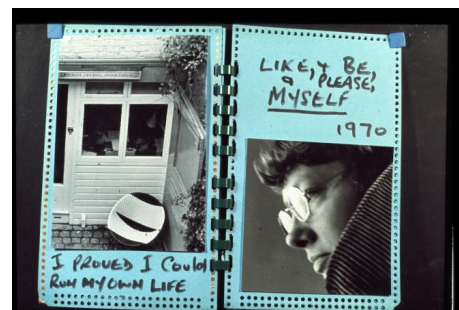 I PROVED I COULD
RUN MY OWN LIFE
LIKE, & BE,
& PLEASE,
MYSELF
1970